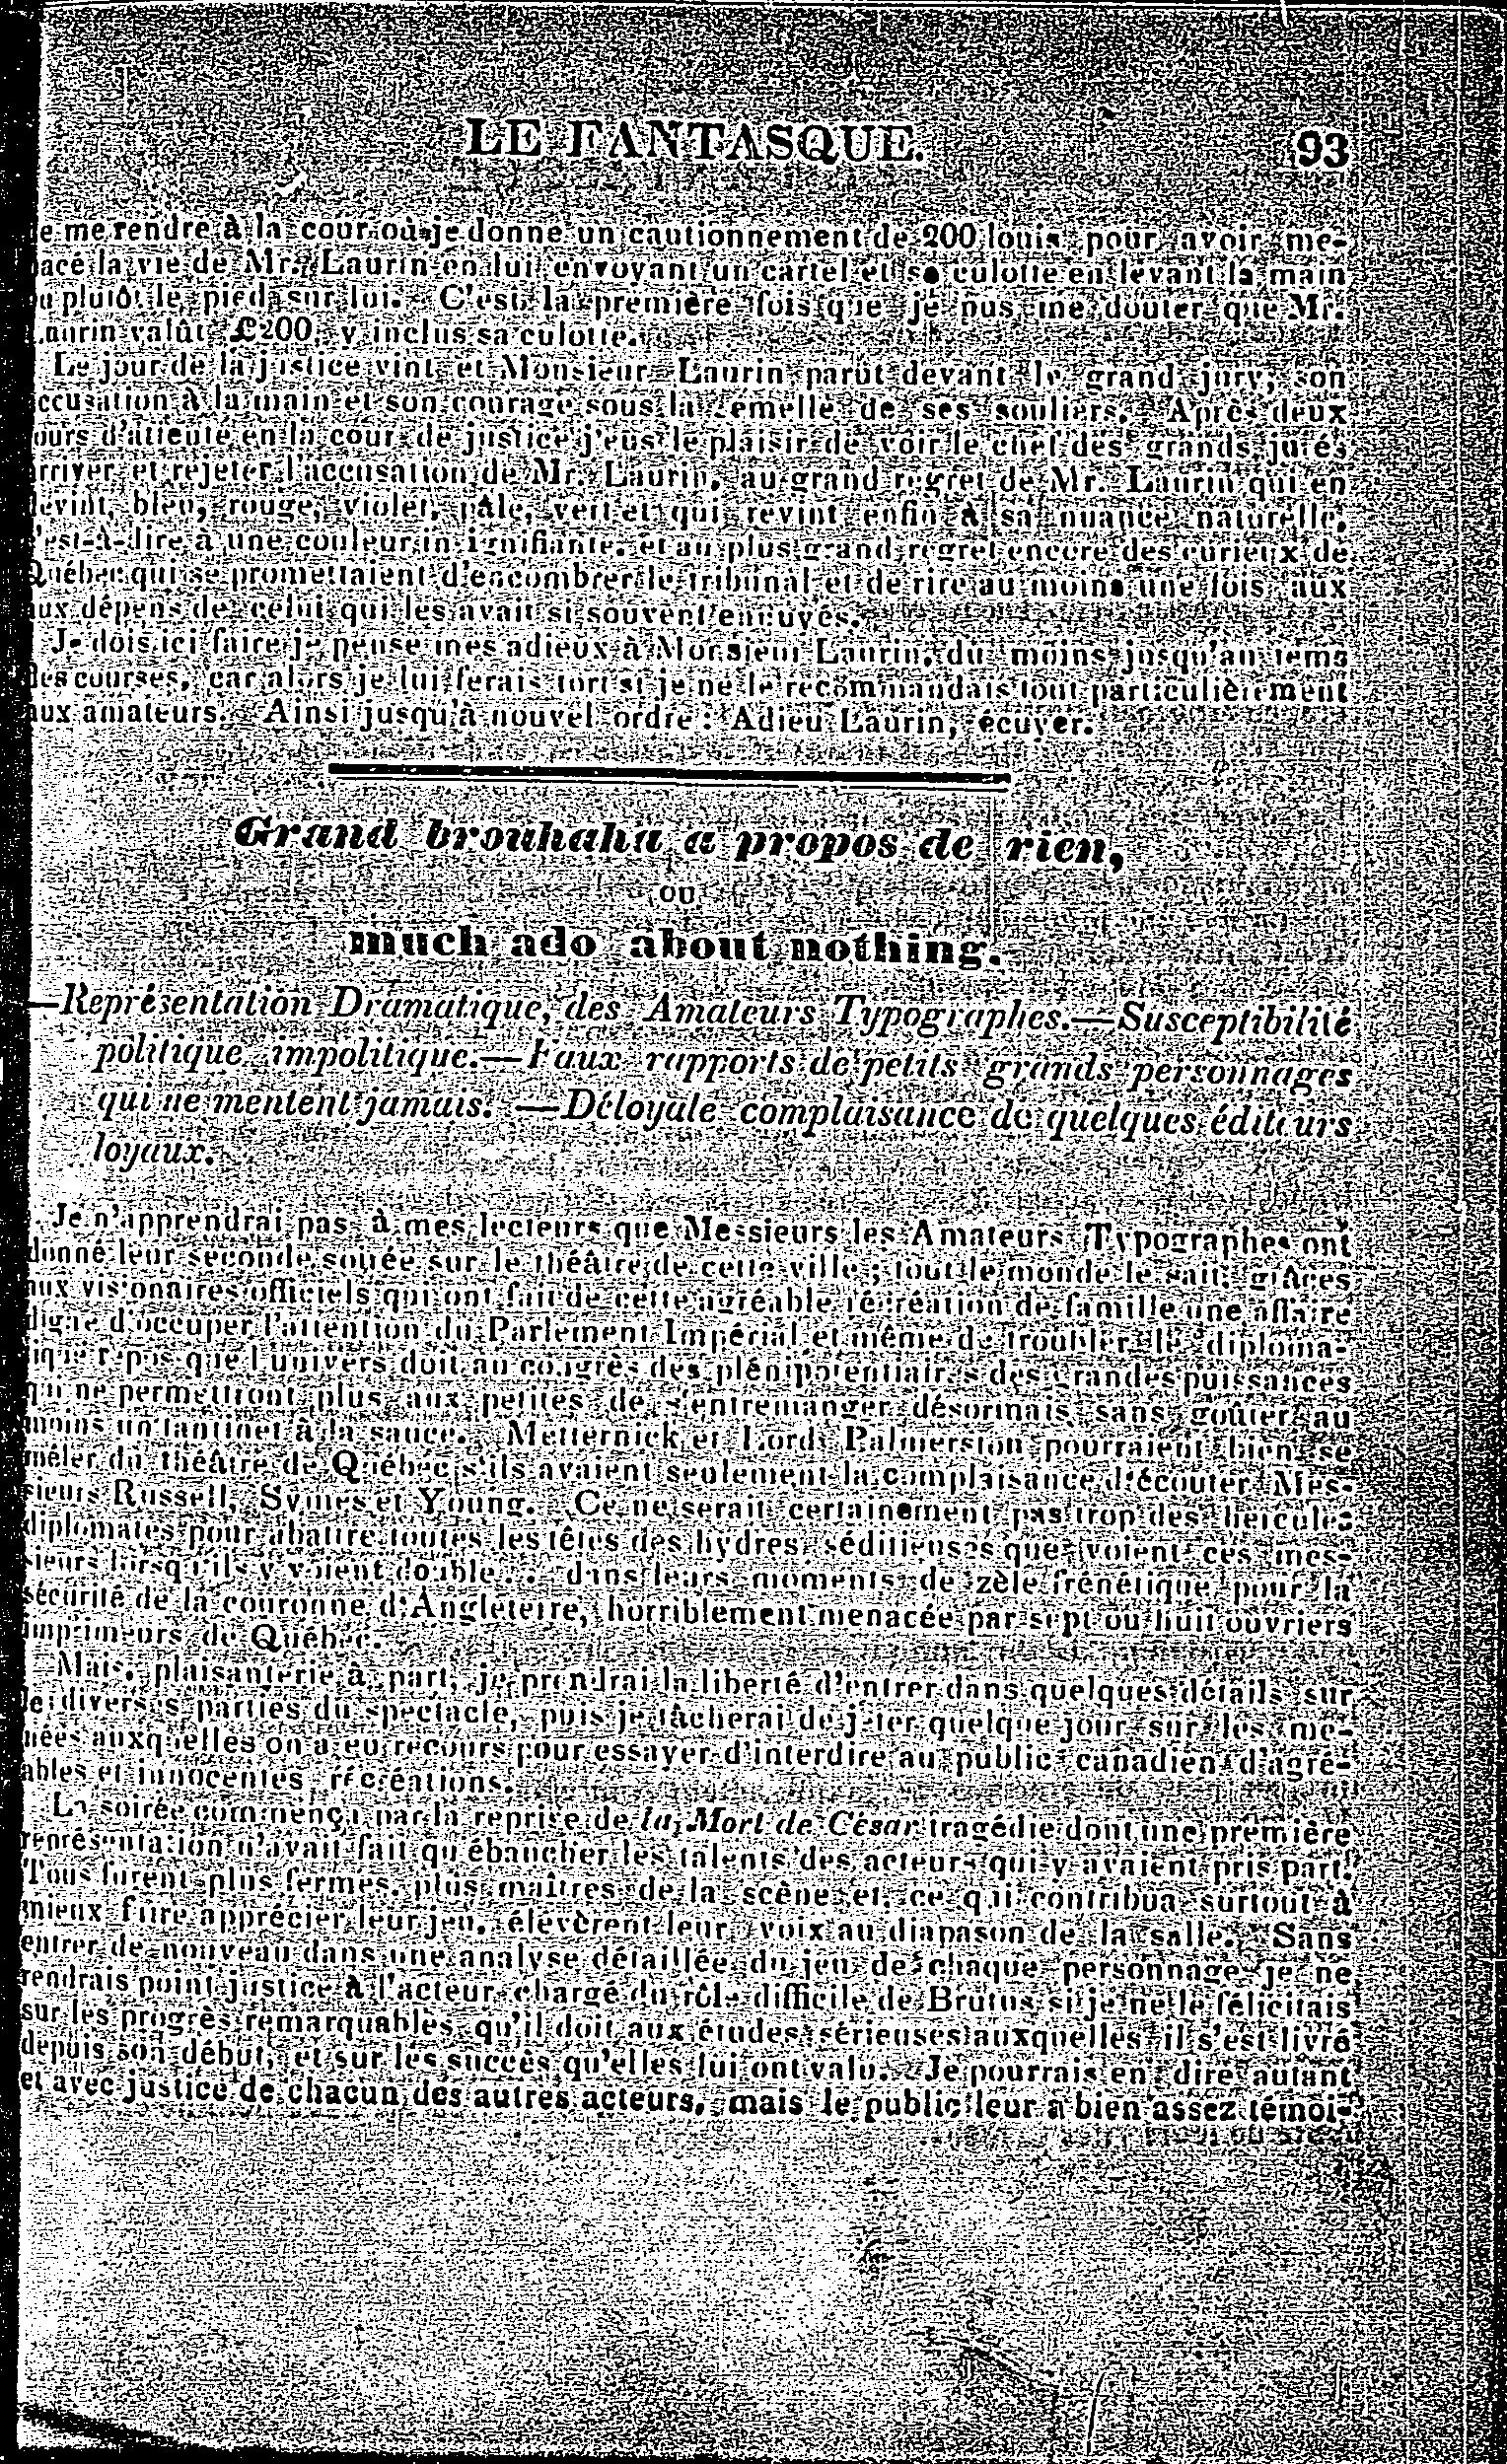 LE FANTASQUE. 93
de me rendre à la cour où je donne un cautionnement de 200 louis pour avoir me-
nacé la vie de Mr. Laurin en lui envoyant un cartel et sa culotte en levant la main
ou plutôt le pied sur lui. C'est la première fois que je pus me douter que Mr.
Laurin valût £200, y inclus sa culotte.
Le jour de la justice vint et Monsieur Laurin parût devant le grand jury, son
accusation à la main et son courage sous la semelle de ses souliers. Après deux
jours d'attente en la cour de justice j'eus le plaisir de voir le chef des grands jurés
arriver et rejeter l'accusation de Mr. Laurin, au grand regret de Mr. Laurin qui en
devint, bleu, rouge, violet, pâle, vert et qui revint enfin à sa nuance naturelle,
c'est-à-dire à une couleur insignifiante, et au plus grand regret encore des curieux de
Québec qui se promettaient d'encombrer le tribunal et de rire au moins une fois aux
aux dépens de celui qui les avait si souvent ennuyés.
Je dois ici faire je pense mes adieux à Monsieur Laurin, du moins jusqu'au tems
des courses, car alors je lui ferais tort si je ne le recommandais tout particulièrement
aux amateurs. Ainsi jusqu'à nouvel ordre : Adieu Laurin, écuyer.
Grand brouhaha a propos de rien,
ou
much ado about nothing.
—Représentation Dramatique, des Amateurs Typographes.—Susceptibilité
politique impolitique.—Faux rapports de petits grands personnages
qui ne mentent jamais. —Déloyale complaisance de quelques éditeurs
loyaux.
Je n'apprendrai pas à mes lecteurs que Messieurs les Amateurs Typographes ont
donné leur seconde soirée sur le théâtre de cette ville ; tout le monde le sait, grâces
aux visionnaires officiels qui ont fait de cette agréable récréation de famille une affaire
digne d'occuper l'attention du Parlement Impérial et même de troubler le diploma-
tique repos que l'univers doit au congrès des plénipotentiaires des grandes puissances
qui ne permettront plus aux petites de s'entremanger désormais sans goûter au
moins un tantinet à la sauce. Metternick et Lord Palmerston pourraient bien se
mêler du théâtre de Québec s'ils avaient seulement la complaisance d'écouter Mes-
sieurs Russell, Symes et Young. Ce ne serait certainement pas trop des hercules
diplomates pour abattre toutes les têtes des hydres séditieuses que voient ces mes-
sieurs lorsqu'ils y voient double . . dans leurs moments de zèle frénétique pour la
sécurité de la couronne d'Angleterre, horriblement menacée par sept ou huit ouvriers
imprimeurs de Québec.
Mais, plaisanterie à part, je prendrai la liberté d'entrer dans quelques détails sur
les diverses parties du spectacle, puis je tâcherai de jeter quelque jour sur les me-
nées auxquelles on a eu recours pour essayer d'interdire au public canadien d'agré-
ables et innocentes récréations.
La soirée commença par la reprise de la Mort de César tragédie dont une première
représentation n'avait fait qu'ébaucher les talents des acteurs qui y avaient pris part.
Tous furent plus fermes, plus maîtres de la scène et, ce qui contribua surtout à
mieux faire apprécier leur jeu, élevèrent leur voix au diapason de la salle. Sans
entrer de nouveau dans une analyse détaillée du jeu de chaque personnage je ne
rendrais point justice à l'acteur chargé du rôle difficile de Brutus si je ne le félicitais
sur les progrès remarquables qu'il doit aux études sérieuses auxquelles il s'est livré
depuis son début, et sur les succès qu'elles lui ont valu. Je pourrais en dire autant
et avec justice de chacun des autres acteurs, mais le public leur a bien assez témoi-